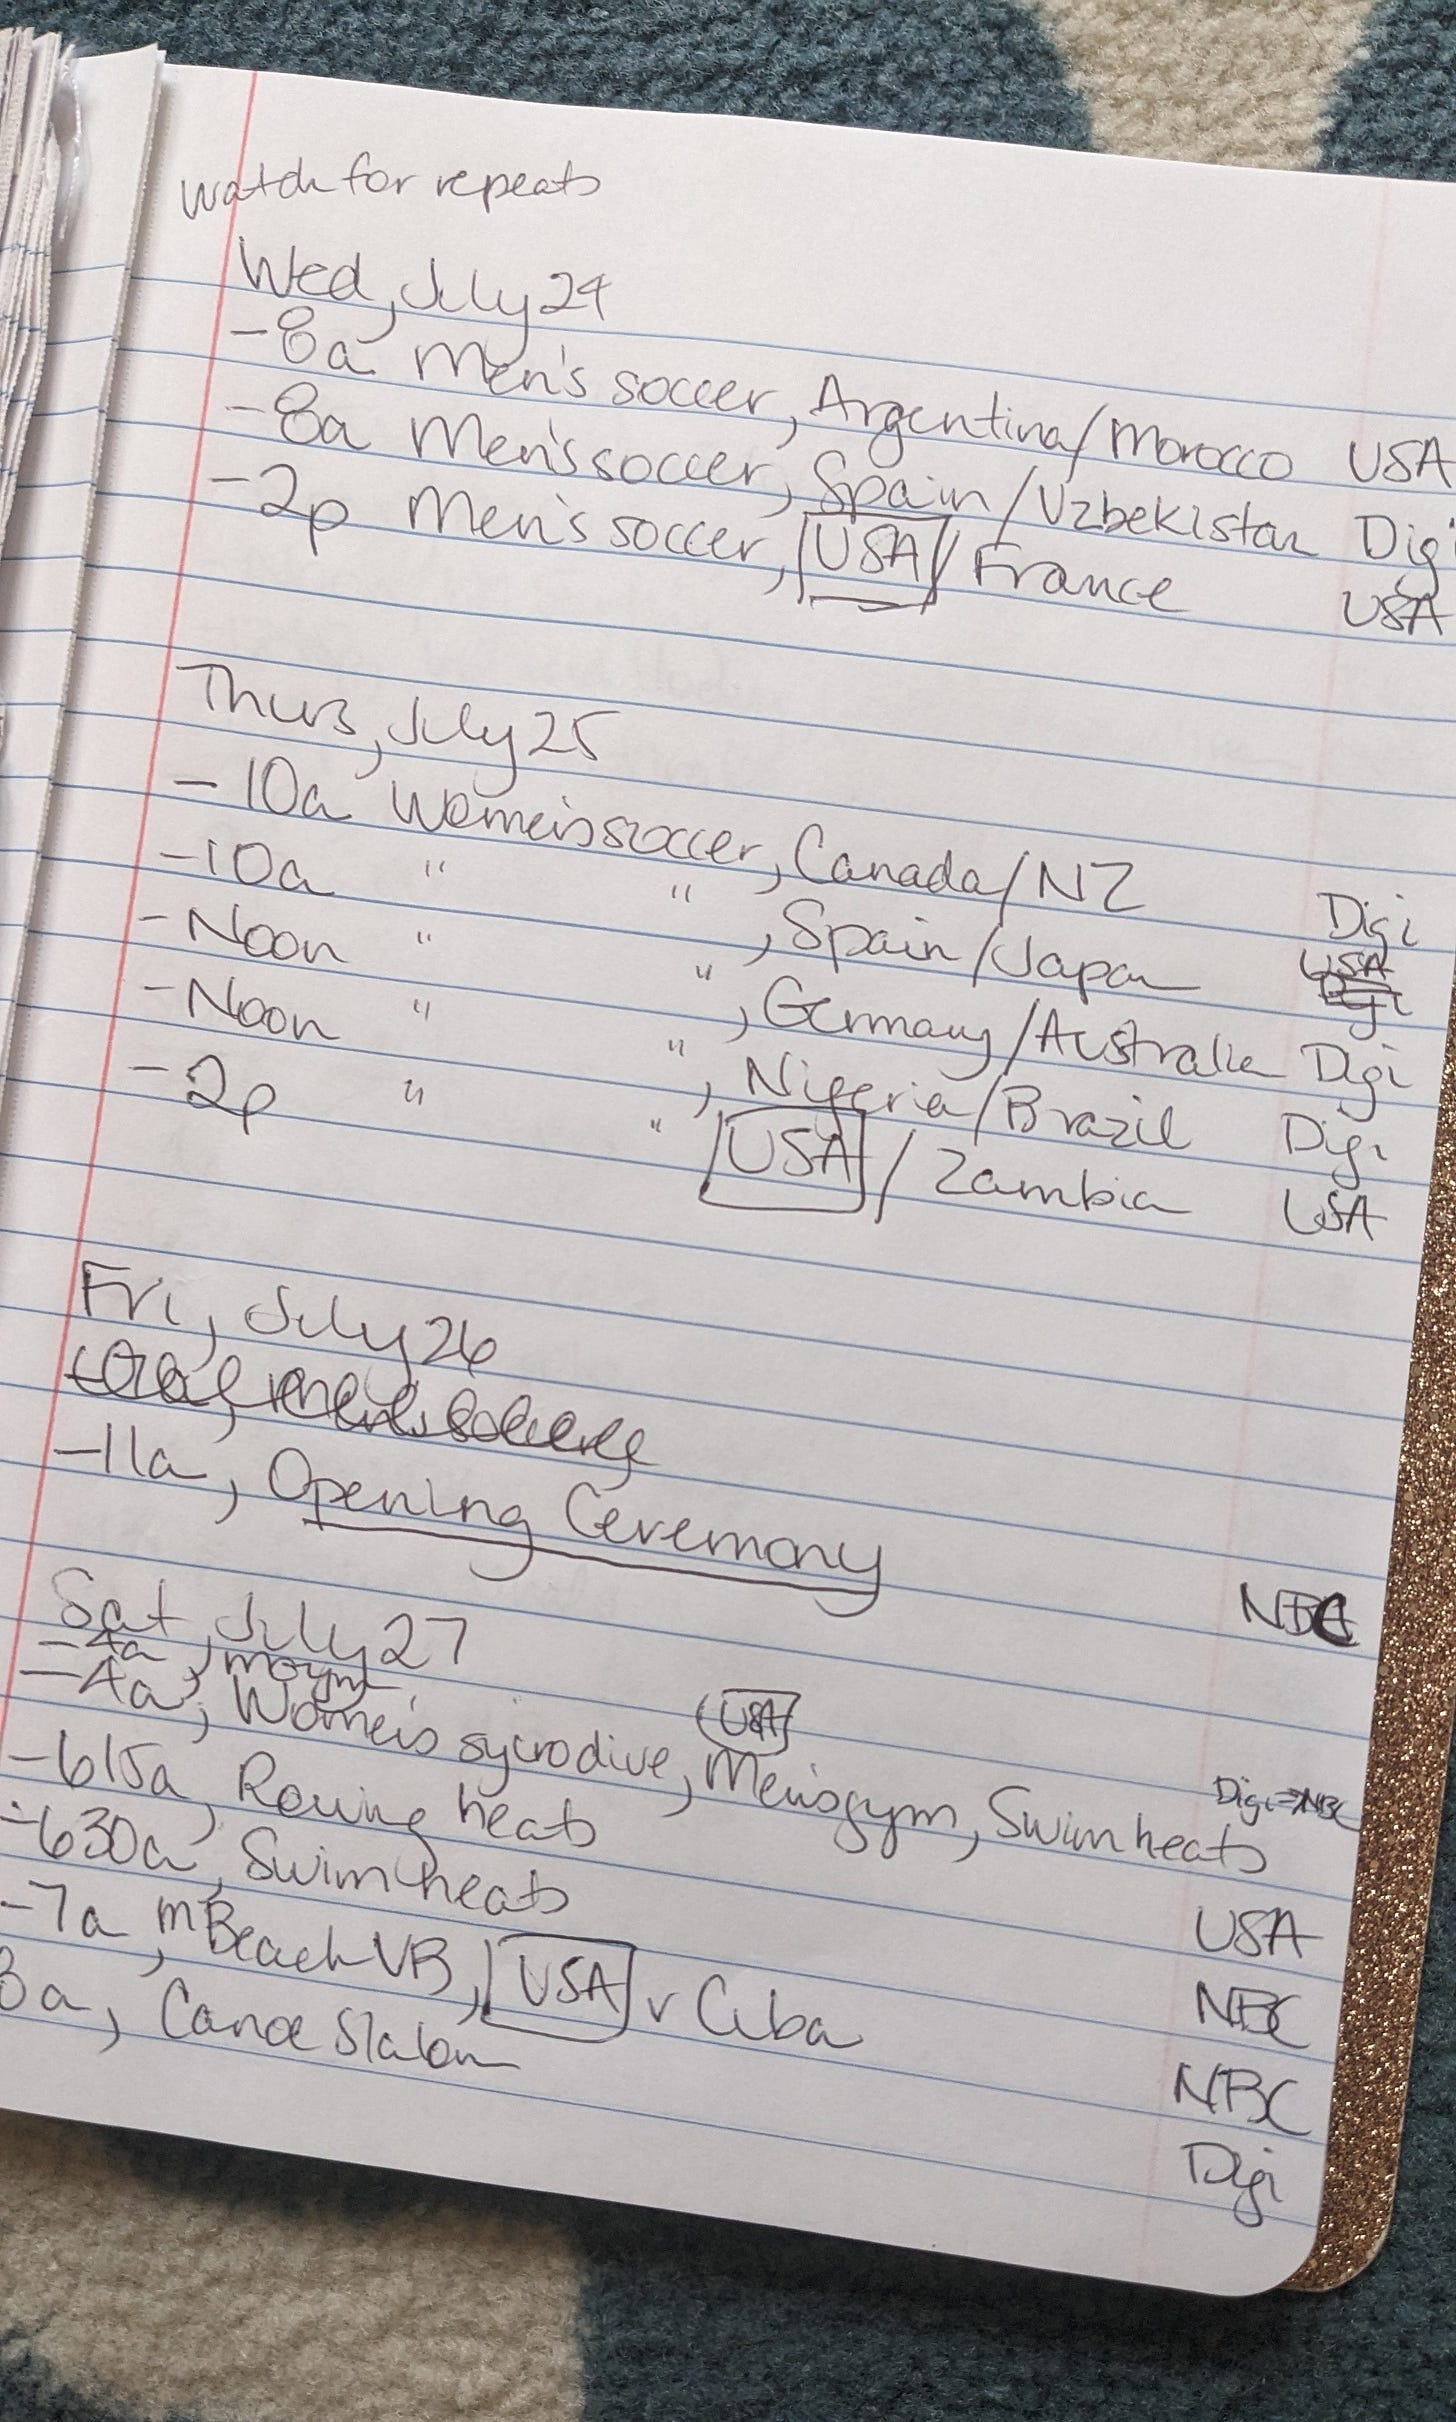 watch for repeats
Wed, July 24
- 8a Men's soccer, Argentina/Morocco USA
- 8a Men's soccer, Spain/Uzbekistan Digi
- 2p Men's soccer, USA/France USA
Thurs, July 25
- 10a Women's soccer, Canada/NZ Digi
- 10a " " , Spain/Japan USA
- Noon " " , Germany/Australia Digi
- Noon " " , Nigeria/Brazil Digi
- 2p " " USA/Zambia USA
Fri, July 26
- 11a, Opening Ceremony NBC
Sat, July 27
- 4a, m gym
- 4a, Women's sycro dive, (USA) Men's gym, Swim heats Digi → NBC
- 615a, Rowing heats USA
- 630a, Swim heats NBC
- 7a, m Beach VB, USA v Cuba NBC
8a, Canoe Slalom Digi